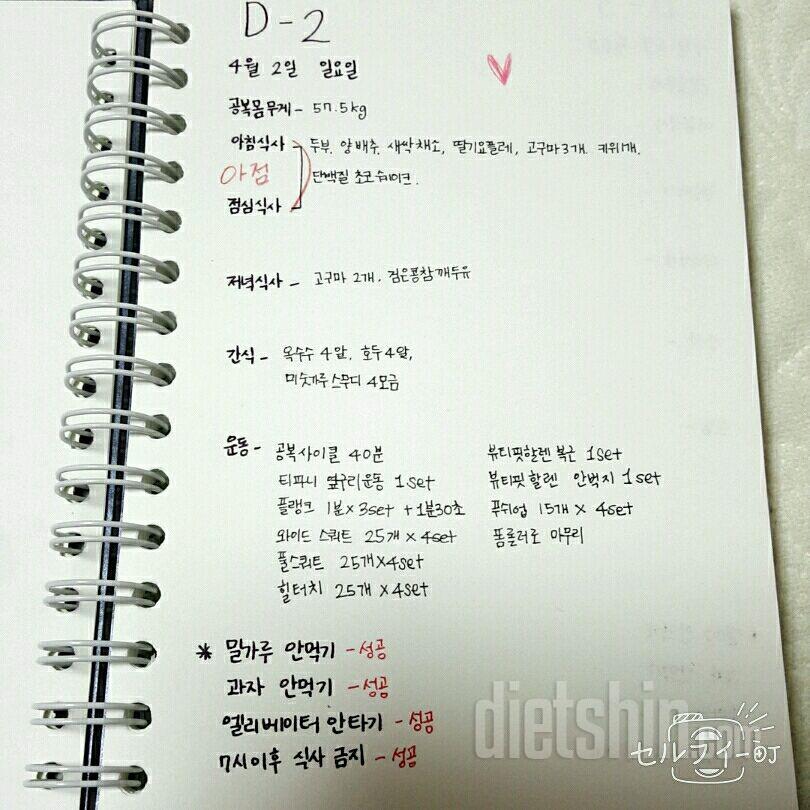 D-2
4월 2일 일요일
공복몸무게 - 57.5kg
아침식사 - 두부, 양배추, 새싹채소, 딸기요플레, 고구마3개, 키위1개,
아점
단백질 초코쉐이크.
점심식사
저녁식사 - 고구마 2개, 검은콩참깨두유
간식 - 옥수수 4알, 호두4알,
미숫가루스무디 4모금
운동 - 공복사이클 40분
티파니 옆구리운동 1set
플랭크 1분×3set + 1분30초
와이드 스쿼트 25개 × 4set
풀스쿼트 25개×4set
힐터치 25개 ×4set
뷰티핏할렌 복근 1set
뷰티핏할렌 안벅지 1set
푸쉬업 15개 × 4set
폼롤러로 마무리
* 밀가루 안먹기 - 성공
과자 안먹기 - 성공
엘리베이터 안타기 - 성공
7시이후 식사 금지 - 성공
dietshin.com
セルフィー町